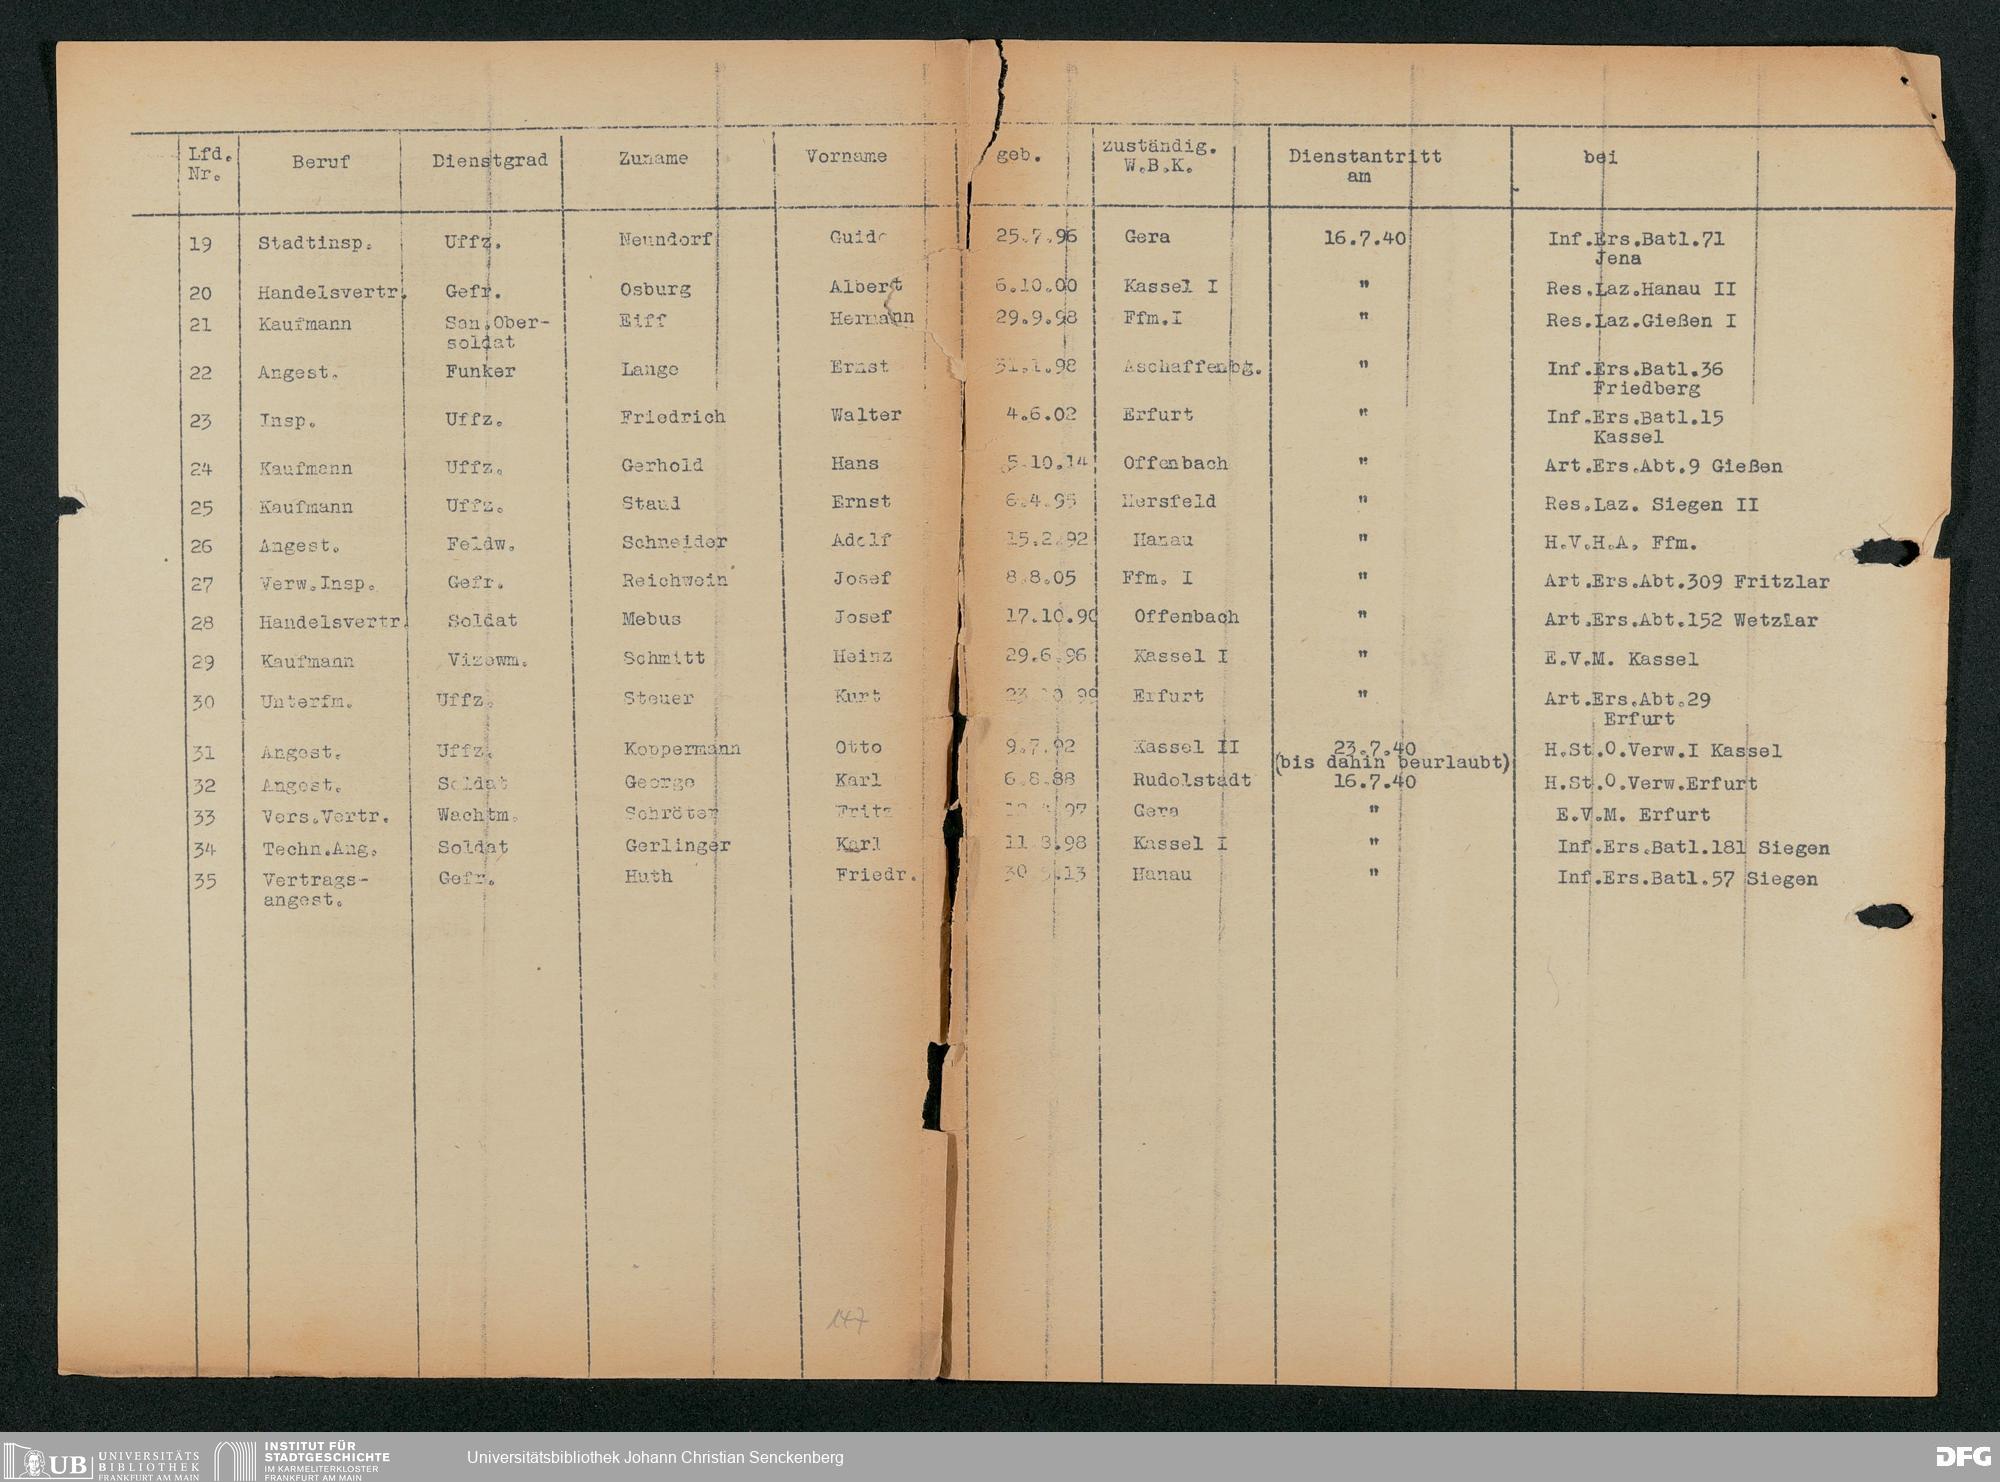 Lfd. Nr. Beruf Dienstgrad Zuname Vorname geb. zuständig. W.B.K. Dienstantritt am bei
19 Stadtinsp. Uffz. Neundorf Guido 25.7.96 Gera 16.7.40 Inf.Ers.Batl.71
Jena
20 Handelsvertr. Gefr. Osburg Albert 6.10.00 Kassel I " Res.Laz.Hanau II
21 Kaufmann San.Ober- Eiff Hermann 29.9.98 Ffm.I " Res.Laz.Gießen I
soldat
22 Angest. Funker Lange Ernst 31.1.98 Aschaffenbg. " Inf.Ers.Batl.36
Friedberg
23 Insp. Uffz. Friedrich Walter 4.6.02 Erfurt " Inf.Ers.Batl.15
Kassel
24 Kaufmann Uffz. Gerhold Hans 5.10.14 Offenbach " Art.Ers.Abt.9 Gießen
25 Kaufmann Uffz. Staud Ernst 6.4.95 Hersfeld " Res.Laz. Siegen II
26 Angest. Feldw. Schneider Adolf 15.2.92 Hanau " H.V.H.A. Ffm.
27 Verw.Insp. Gefr. Reichwein Josef 8.8.05 Ffm. I " Art.Ers.Abt.309 Fritzlar
28 Handelsvertr. Soldat Mebus Josef 17.10.90 Offenbach " Art.Ers.Abt.152 Wetzlar
29 Kaufmann Vizewm. Schmitt Heinz 29.6.96 Kassel I " E.V.M. Kassel
30 Unterfm. Uffz. Steuer Kurt 23.10.99 Erfurt " Art.Ers.Abt.29
Erfurt
31 Angest. Uffz. Koppermann Otto 9.7.92 Kassel II 23.7.40 H.St.O.Verw.I Kassel
(bis dahin beurlaubt)
32 Angest. Soldat George Karl 6.8.88 Rudolstadt 16.7.40 H.St.O.Verw.Erfurt
33 Vers.Vertr. Wachtm. Schröter Fritz Gera " E.V.M. Erfurt
34 Techn.Ang. Soldat Gerlinger Karl 11.8.98 Kassel I " Inf.Ers.Batl.181 Siegen
35 Vertrags- Gefr. Huth Friedr. Hanau " Inf.Ers.Batl.57 Siegen
angest.
147
UB UNIVERSITÄTS
BIBLIOTHEK
FRANKFURT AM MAIN
INSTITUT FÜR
STADTGESCHICHTE
IM KARMELITERKLOSTER
FRANKFURT AM MAIN
Universitätsbibliothek Johann Christian Senckenberg
DFG